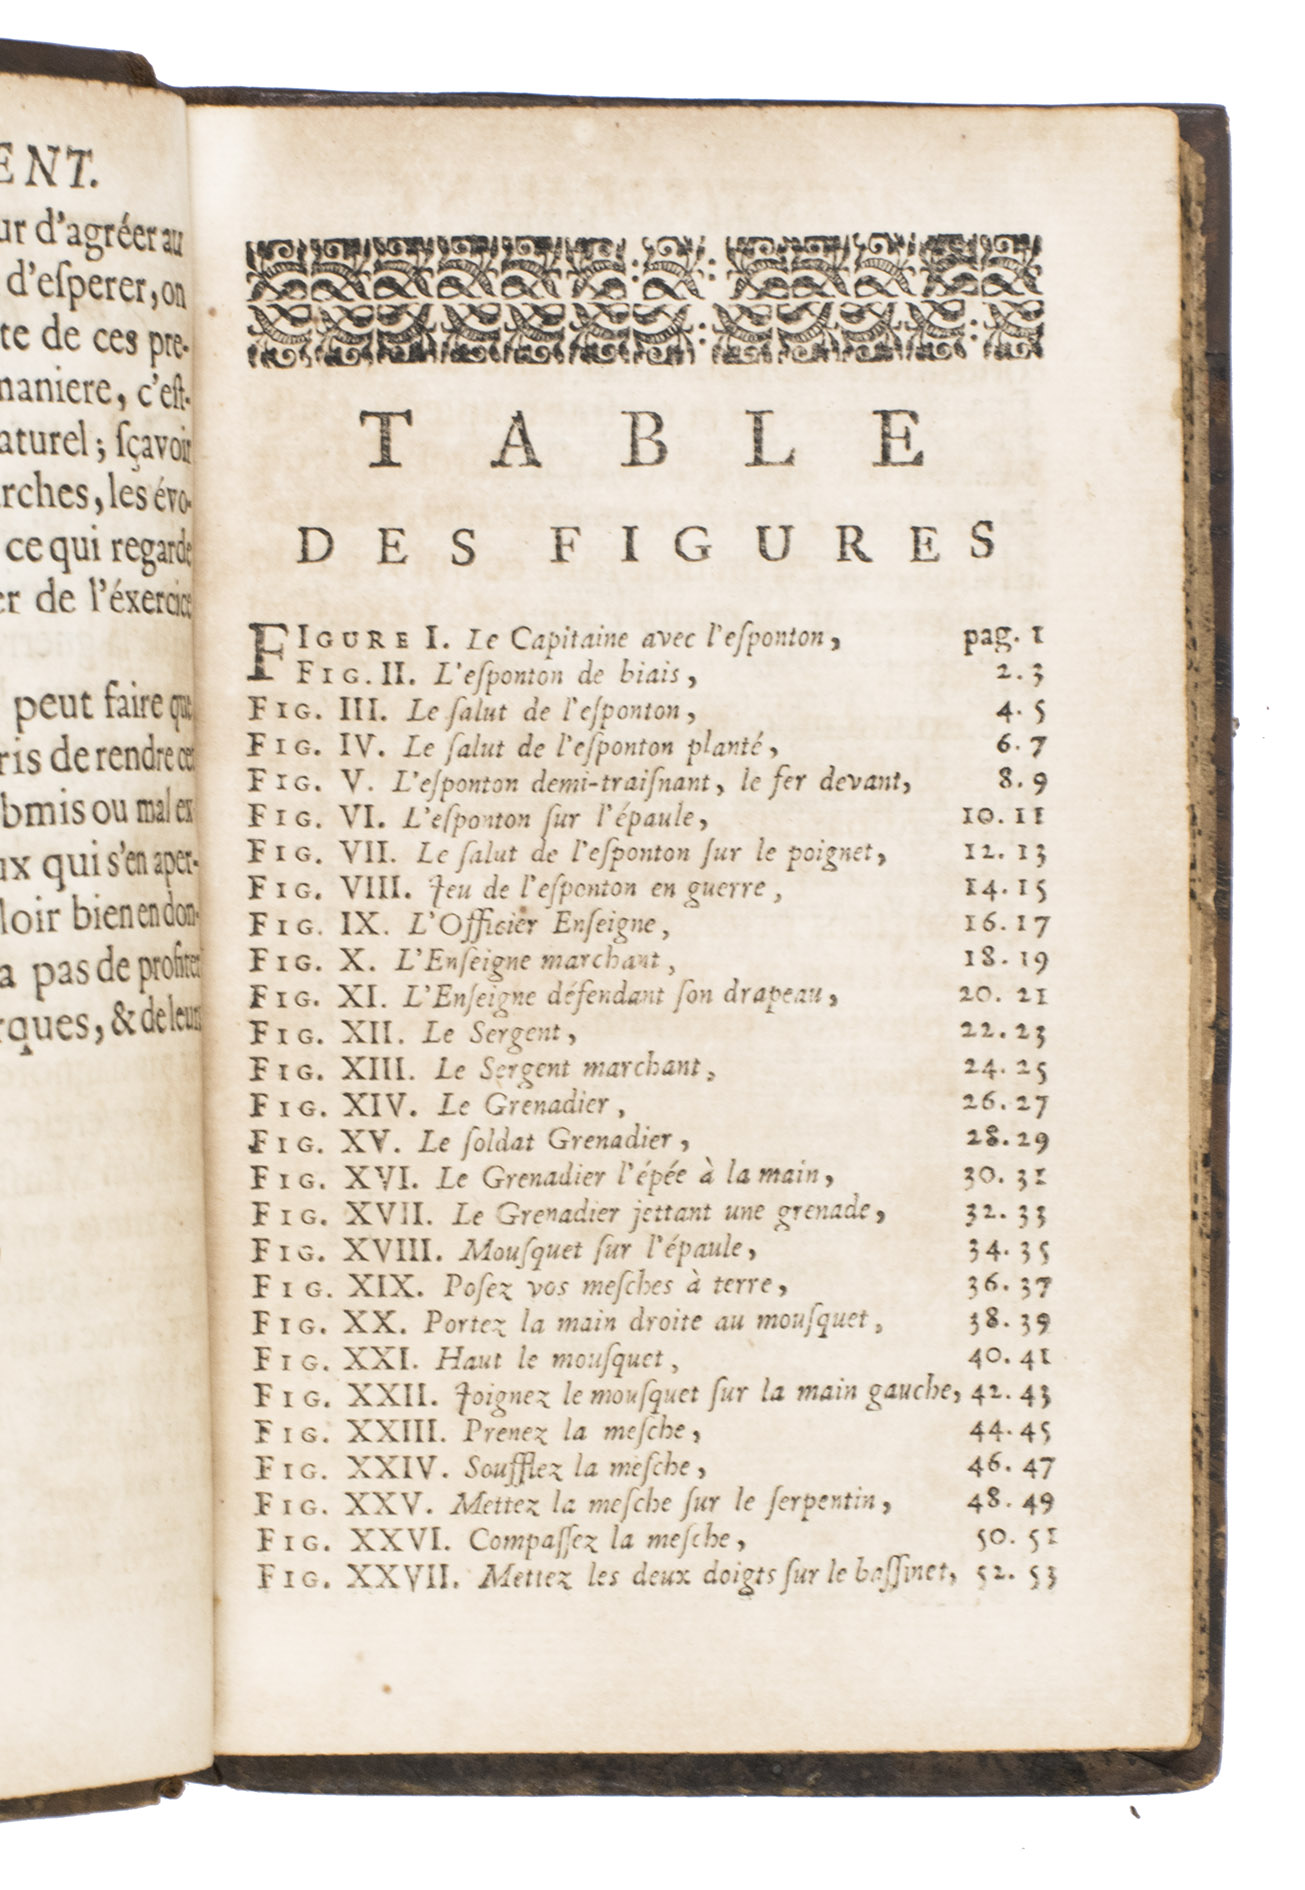 ENT.
ur d'agréer au
d'eſperer, on
te de ces pre-
maniere, c'eſt-
aturel; ſçavoir
rches, les évo-
ce qui regarde
er de l'éxercice
peut faire que
ris de rendre ces
bmis ou mal ex
ux qui s'en aper-
loir bien en don-
a pas de profiter
rques, & de leurs
TABLE
DES FIGURES
FIGURE I. Le Capitaine avec l'eſponton, pag. 1
FIG. II. L'eſponton de biais, 2. 3
FIG. III. Le ſalut de l'eſponton, 4. 5
FIG. IV. Le ſalut de l'eſponton planté, 6. 7
FIG. V. L'eſponton demi-traiſnant, le fer devant, 8. 9
FIG. VI. L'eſponton ſur l'épaule, 10. 11
FIG. VII. Le ſalut de l'eſponton ſur le poignet, 12. 13
FIG. VIII. Jeu de l'eſponton en guerre, 14. 15
FIG. IX. L'Officier Enſeigne, 16. 17
FIG. X. L'Enſeigne marchant, 18. 19
FIG. XI. L'Enſeigne défendant ſon drapeau, 20. 21
FIG. XII. Le Sergent, 22. 23
FIG. XIII. Le Sergent marchant, 24. 25
FIG. XIV. Le Grenadier, 26. 27
FIG. XV. Le ſoldat Grenadier, 28. 29
FIG. XVI. Le Grenadier l'épée à la main, 30. 31
FIG. XVII. Le Grenadier jettant une grenade, 32. 33
FIG. XVIII. Mouſquet ſur l'épaule, 34. 35
FIG. XIX. Poſez vos meſches à terre, 36. 37
FIG. XX. Portez la main droite au mouſquet, 38. 39
FIG. XXI. Haut le mouſquet, 40. 41
FIG. XXII. Joignez le mouſquet ſur la main gauche, 42. 43
FIG. XXIII. Prenez la meſche, 44. 45
FIG. XXIV. Soufflez la meſche, 46. 47
FIG. XXV. Mettez la meſche ſur le ſerpentin, 48. 49
FIG. XXVI. Compaſſez la meſche, 50. 51
FIG. XXVII. Mettez les deux doigts ſur le baſſinet, 52. 53